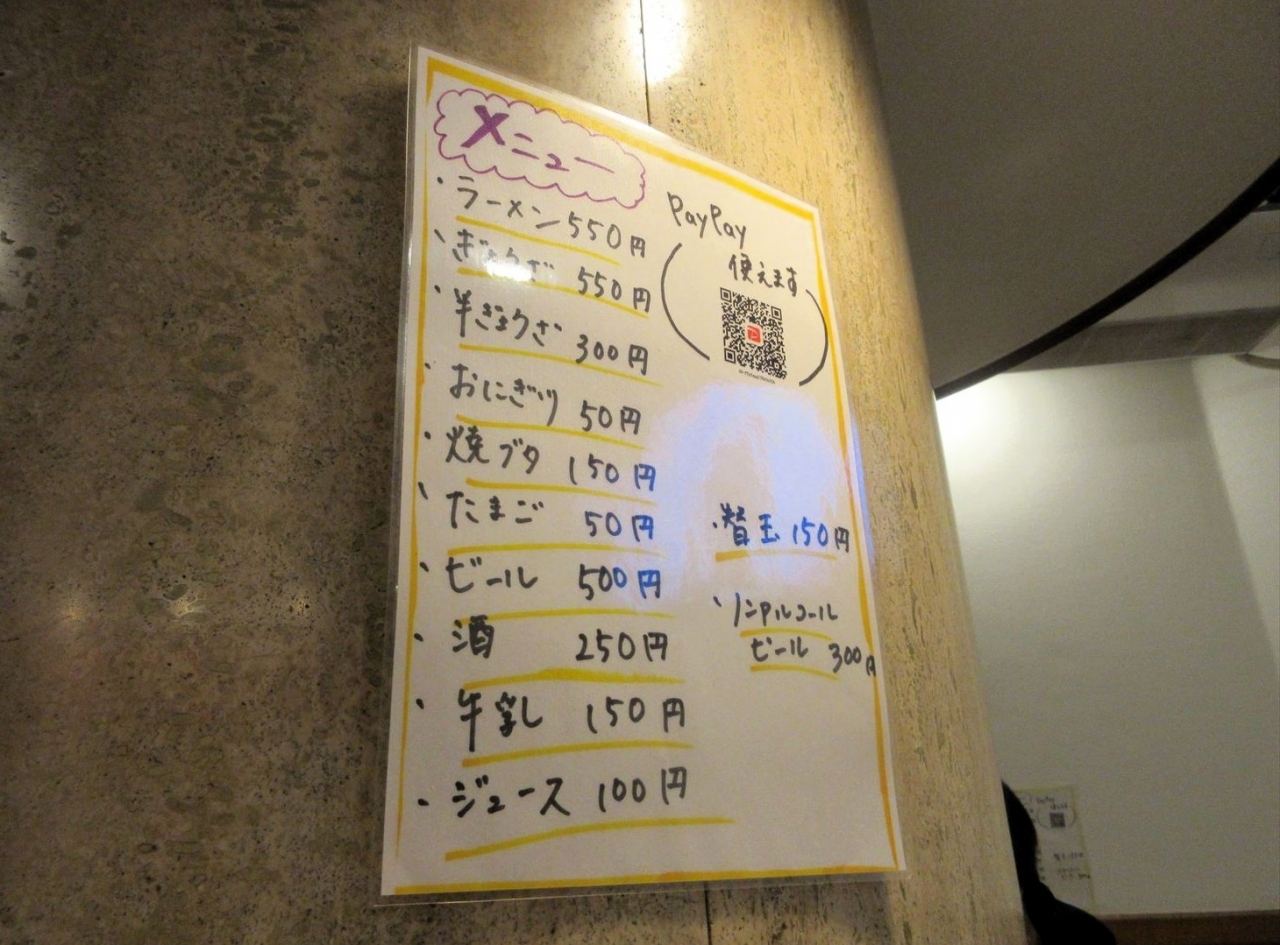 メニュー
・ラーメン 550円
・ぎょうざ 550円
・半ぎょうざ 300円
・おにぎり 50円
・焼ブタ 150円
・たまご 50円
・ビール 500円
・酒 250円
・牛乳 150円
・ジュース 100円
PayPay
使えます
・替玉 150円
・ノンアルコール
ビール 300円